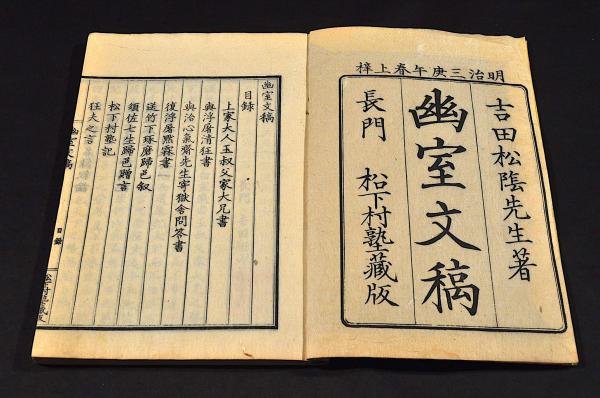 明治三庚午春上梓
吉田松陰先生著
幽室文稿
長門 松下村塾藏版
幽室文稿
目録
上家大人玉叔父家大兄書
與浮屠清狂書
與治心氣齋先生
復浮屠黙霖書
送竹下琢磨歸邑叙
須佐七生歸邑贈言
松下村塾記
狂夫之言
幽室文稿
目録